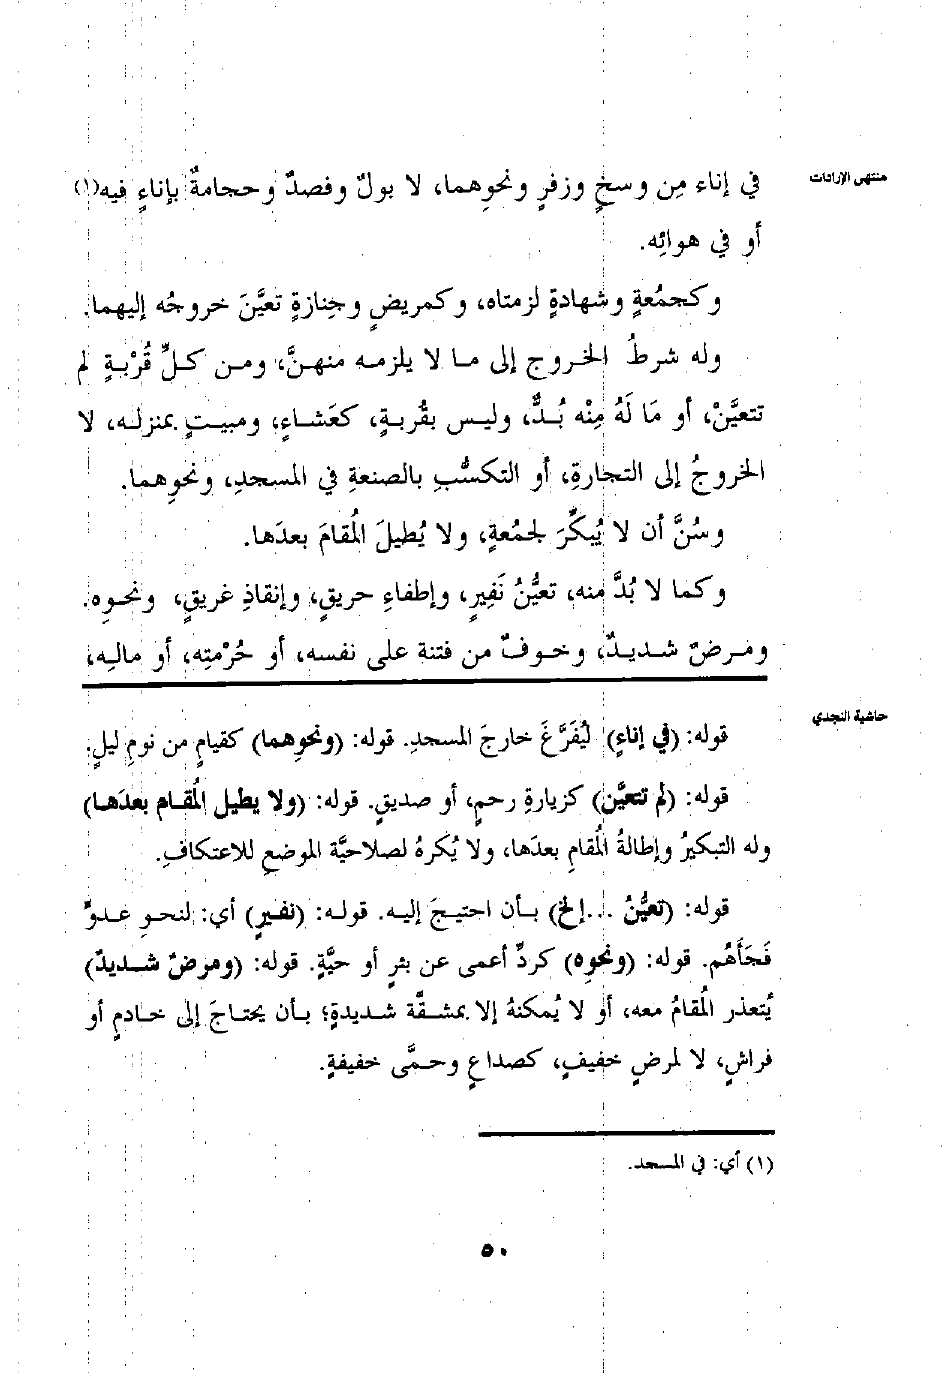 منتهى الإرادات
في إناء مِن وسخٍ وزفرٍ ونحوِهما، لا بولٌ وفصدٌ وحجامةٌ بإناءٍ فيه(١)
أو في هوائِه.
وكجمُعةٍ وشهادةٍ لزمتاه، وكمريضٍ وجِنازةٍ تعيَّنَ خروجُه إليهما.
وله شرطُ الخروج إلى ما لا يلزمه منهنَّ، ومن كلِّ قُرْبةٍ لم
تتعيَّنْ، أو مَا لَهُ مِنْه بُدٌّ، وليس بقُربةٍ، كعَشاءٍ، ومبيتٍ بمنزله، لا
الخروجُ إلى التجارةِ، أو التكسُّبِ بالصنعةِ في المسجدِ، ونحوِهما.
وسُنَّ أن لا يُبكِّرَ لجمُعةٍ، ولا يُطيلَ المُقامَ بعدَها.
وكما لا بُدَّ منه، تعيُّنُ نَفِيرٍ، وإطفاءِ حريقٍ، وإنقاذِ غريقٍ، ونحوِه.
ومرضٌ شديدٌ، وخوفٌ من فتنة على نفسه، أو حُرْمتِه، أو مالِه،
حاشية النجدي
قوله: (في إناءٍ) ليُفَرَّغَ خارجَ المسجدِ. قوله: (ونحوِهما) كقيامٍ من نومِ ليلٍ.
قوله: (لم تتعيَّن) كزيارةِ رحمٍ، أو صديقٍ. قوله: (ولا يطيل المُقام بعدَها)
وله التبكيرُ وإطالةُ المُقامِ بعدَها، ولا يُكرهُ لصلاحيَّة الموضعِ للاعتكافِ.
قوله: (تعيُّنُ ...إلخ) بأن احتيجَ إليه. قوله: (نفيرٍ) أي: لنحوِ عدوٍّ
فَجَأَهُم. قوله: (ونحوِه) كردِّ أعمى عن بئرٍ أو حيَّةٍ. قوله: (ومرضٌ شديدٌ)
يُتعذر المُقامُ معه، أو لا يُمكنهُ إلا بمشقَّة شديدةٍ؛ بأن يحتاجَ إلى خادمٍ أو
فراشٍ، لا لمرضٍ خفيفٍ، كصداعٍ وحمَّى خفيفةٍ.
(١) أي: في المسجد.
٥٠